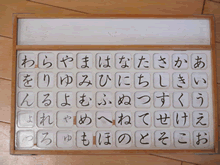 あいうえお
かきくけこ
さしすせそ
たちつてと
なにぬねの
はひふへほ
まみむめも
やゆよゃゅ
らりるれろ
わをんょっ